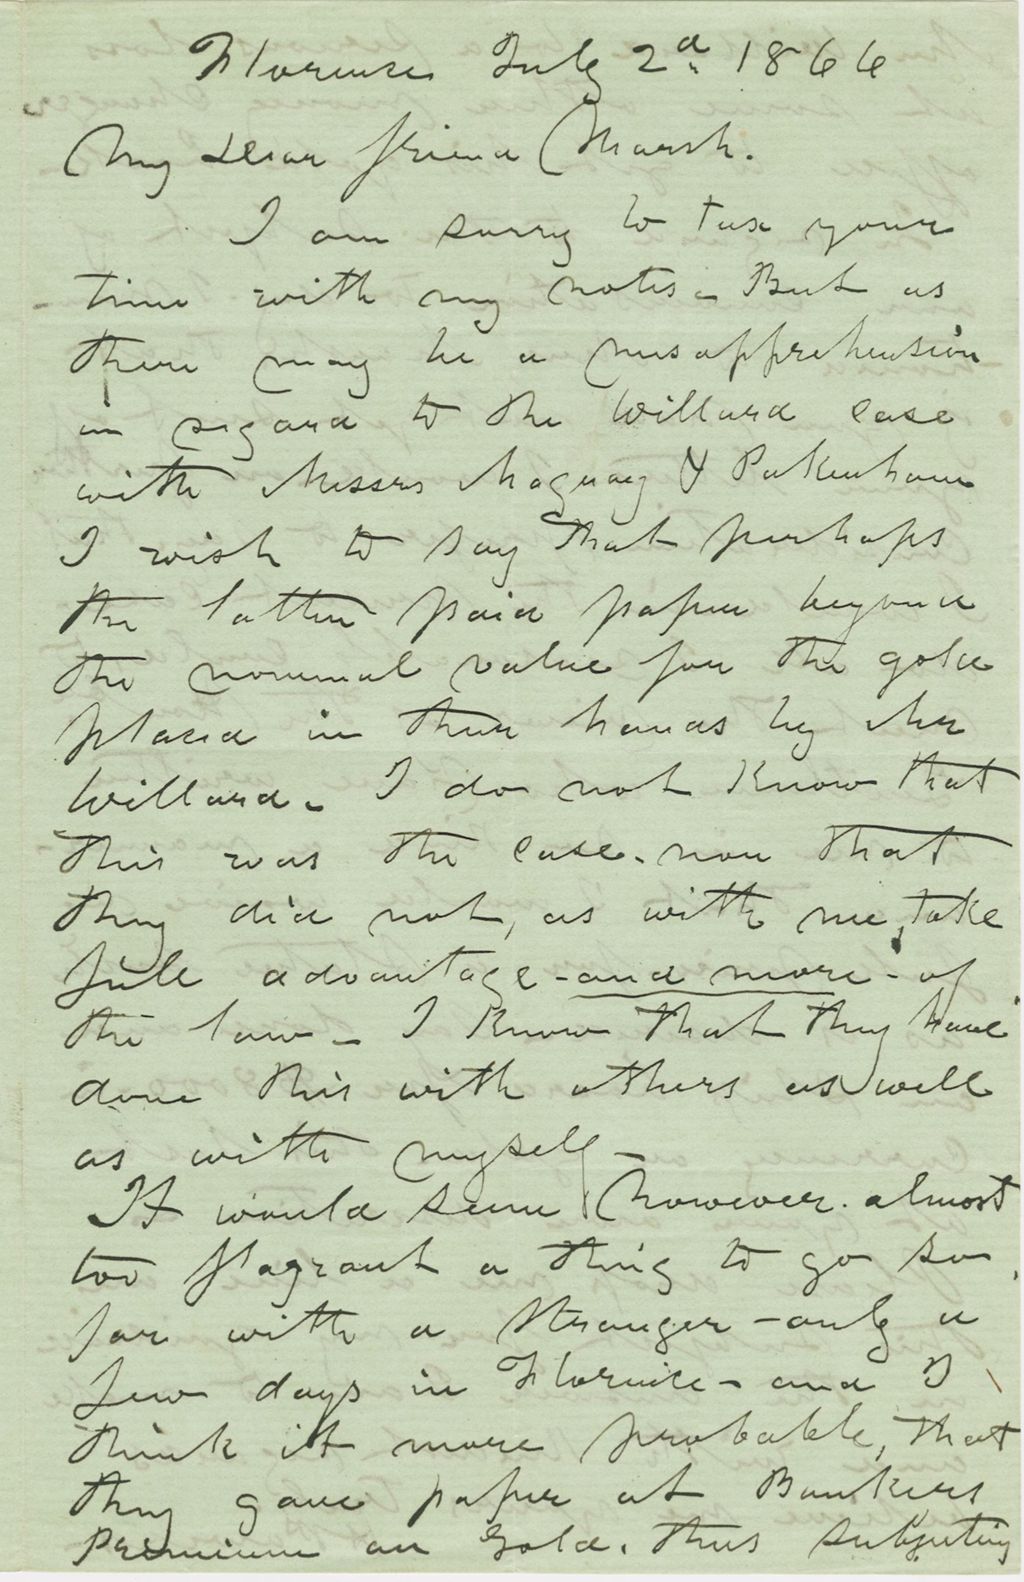 Florence July 2d. 1866
My dear friend Marsh.
I am sorry to tax your
time with my notes - But as
there may be a misapprehension
in regard to the Willard case
with Messrs Maquay & Pakenham
I wish to say that perhaps
the latter paid paper beyond
the nominal value for the gold
placed in their hands by Mr
Willard - I do not know that
this was the case. nor that
they did not, as with me, take
full advantage - and more - of
the law - I know that they have
done this with others as well
as with myself -
It would seem however. almost
too flagrant a thing to go so
far with a stranger - only a
few days in Florence - and I
think it more probable, that
they gave paper at Bankers
Premium on Gold. thus subjecting